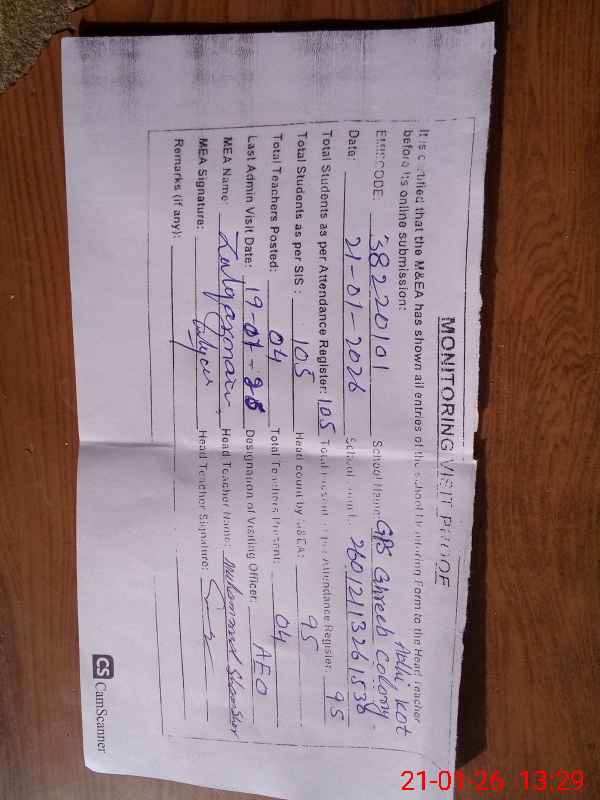 MONITORING VISIT PROOF
It is certified that the M&EA has shown all entries of the School Monitoring Form to the Head Teacher
before its online submission:
EMISCODE: 38220101 School Name: GPS Ghreeb Colony Adhi Kot
Date: 21-01-2026 School 26012113261538
Total Students as per Attendance Register: 105 Total Present as per Attendance Register: 95
Total Students as per SIS: 105 Head count by M&EA: 95
Total Teachers Posted: 04 Total Teachers Present: 04
Last Admin Visit Date: 19-01-26 Designation of Visiting Officer: AEO
MEA Name: Head Teacher Name: Muhammad
MEA Signature: Head Teacher Signature:
Remarks (if any):
CS CamScanner
21-01-26 13:29